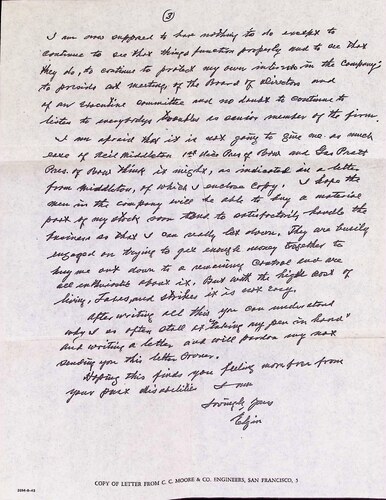 (3)
I am now supposed to have nothing to do except to
continue to see that things function properly and to see that
they do, to continue to protect my own interests in the Company,
to provide at meetings of the Board of Directors and
of our Executive committee and no doubt to continue to
listen to everybodys troubles as senior member of the firm.
I am afraid that it is not going to give me as much
ease as Neil Middleton 1st Vice Pres of and Geo Pratt
Pres. of think it might, as indicated in a letter
from Middleton, of which I enclose copy. I hope the
men in the company will be able to buy a material
part of my stock soon and to satisfactorily handle the
business so that I can really let down. They are busily
engaged on trying to get enough money together to
buy me out down to a remaining control and are
all enthusiastic about it. But with the high cost of
living, Taxes and strikes it is not easy.
After writing all this you can understand
why I so often stall at "taking my pen in hand"
and writing a letter and will pardon my not
sending you this letter sooner.
Hoping this finds you feeling more free from
your past disabilities I am
Lovingly Yours
Elgin
COPY OF LETTER FROM C. C. MOORE & CO. ENGINEERS, SAN FRANCISCO, 5